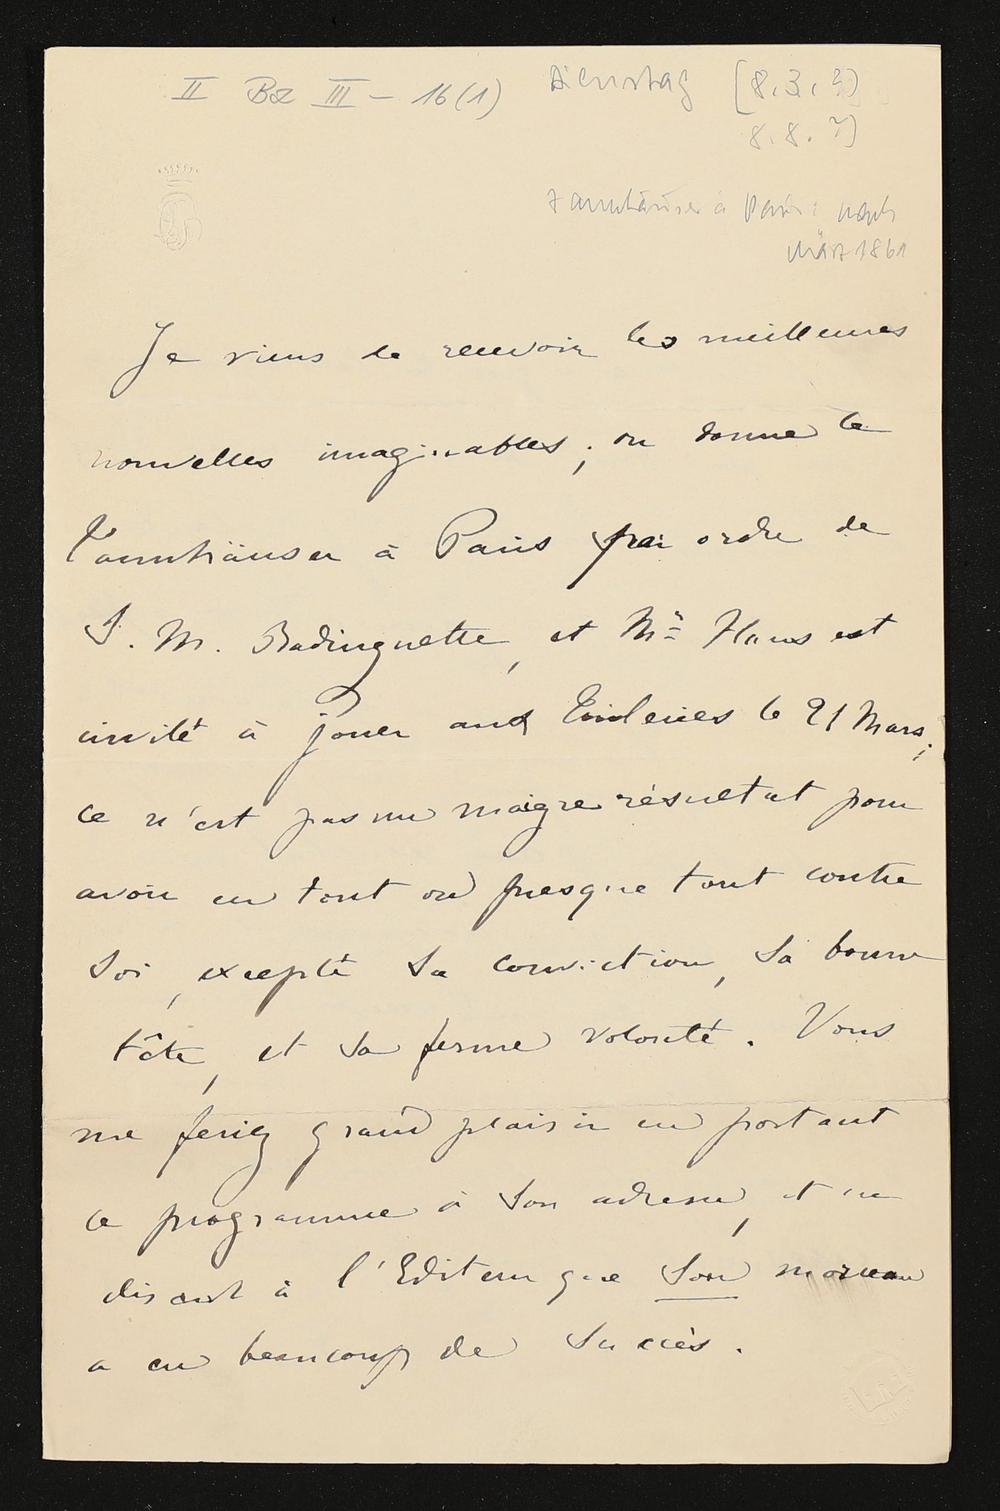 II Bz III - 16(1) Dienstag [8.3.?)
8.8.?)
Tannhäuser à Paris: nach
März 1861
Je viens de recevoir les meilleures
nouvelles imaginables; on donne le
Tannhäuser à Paris par ordre de
S. M. Badinguette, et Mr Hans est
invité à jouer aux Tuileries le 21 Mars;
ce n'est pas un maigre résultat pour
avoir eu tout ou presque tout contre
soi, excepté sa conviction, sa bonne
tête, et sa ferme volonté. Vous
me feriez grand plaisir en portant
ce programme à son adresse, et en
disant à l'Editeur que son morceau
a eu beaucoup de succès.